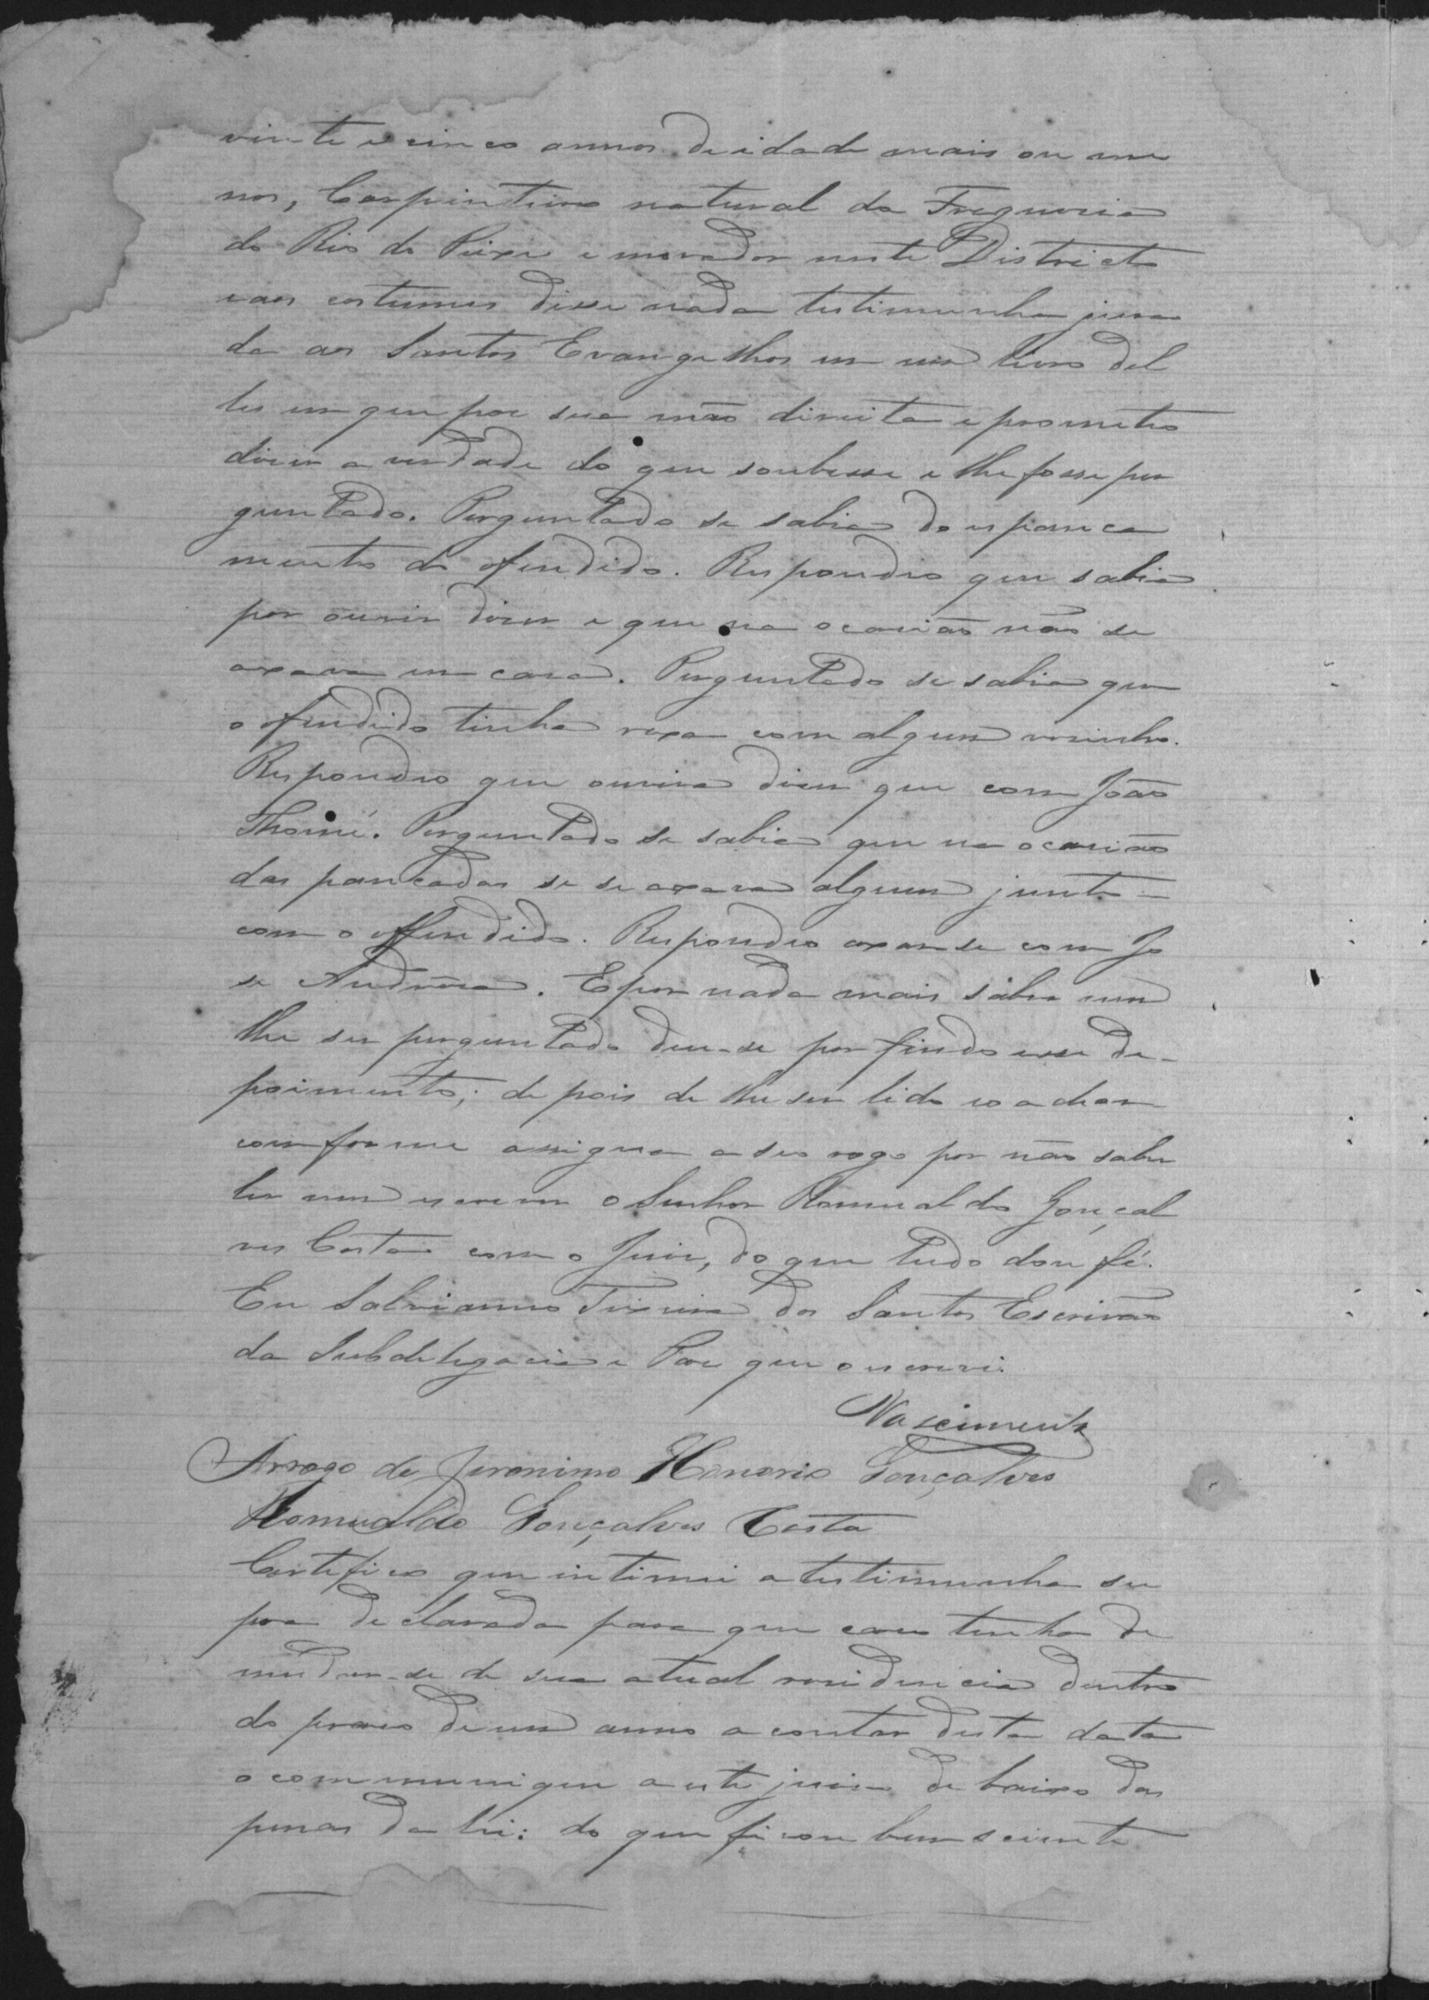 vinte e cinco annos de idade mais ou me
nos, Carpinteiro natural da Freguesia
do Rio do Peixe e morador neste Districto
e aos costumes disse nada testimunha jura
da aos Santos Evangelhos em um livro del
les em que por sua mão direita e prometeo
dizer a verdade do que soubesse e lhe fosse per
guntado. Perguntado se sabia do espanca
mento do ofendido. Respondeo que sabia
por ouvir dizer e que na ocasião não se
axava em casa. Perguntado se sabia que
o ofendido tinha rixa com algum visinho.
Respondeo que ouvira dizer que com João
Thomé. Perguntado se sabia que na ocasião
das pancadas se se axava alguem junto
com o offendido. Respondeo axar-se com Jo
se Andrèa. E por nada mais saber nem
lhe ser perguntado deu-se por findo esse de-
poimento; de pois de lhe ser lido eo achar
comforme assigna a seo rogo por não saber
ler nem escrever o Senhor Romualdo Gonçal
ves Costa com o Juiz, do que tudo dou fé.
Eu Salviamno Teixeira dos Santos Escrivão
da Subdelegacia e Paz que o escrevi.
Nascimento
Arrogo de Jeronimo Honorio Gonçalves
Romualdo Gonçalves Costa
Certifico que intimei a testimunha su
pra declarada para que caso tenha de
mudar-se de sua atual residencia dentro
do praso de um anno a contar desta data
o communique a este juizo de baixo das
penas da lei: do que ficou bem sciente